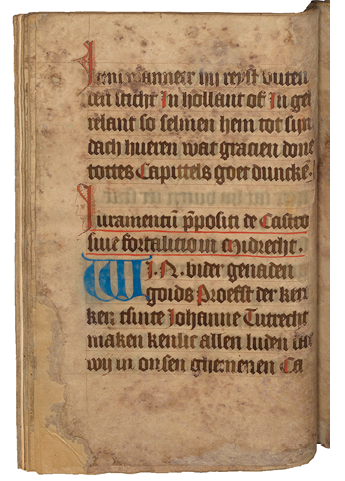 Item wanneer hij reyst buten
den sticht In hollant of In gel
relant so selmen hem tot sijn
dach hueren wat gracien done
tottes Capittels goet duncke.
Iuramentū p̄positi de Castro
siue fortalitioni Midrecht.
WI. N. bider genaden
goids Proefst der ker
ken tsinte Johanne Tutrecht
maken kenlic allen luden dat
wij in onsen ghemenen Ca